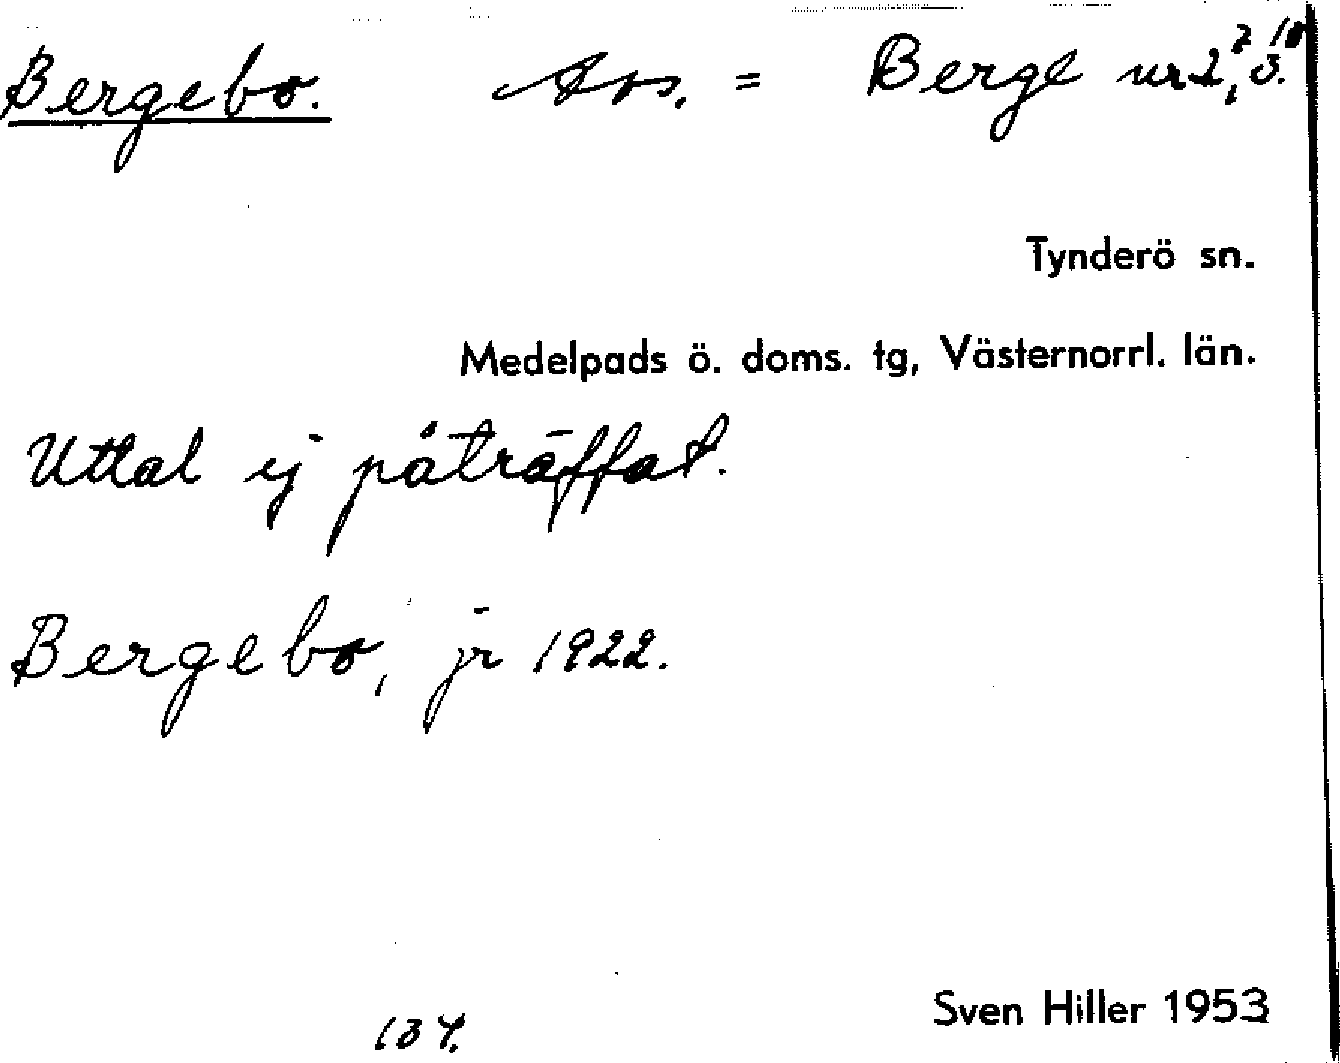 Bergebo. Avs. = Berge nr 2,⁷ 3.¹⁰
Tynderö sn.
Medelpads ö. doms. tg, Västernorrl. län.
Uttal ej påträffat.
Bergebo, jr 1922.
Sven Hiller 1953
134.